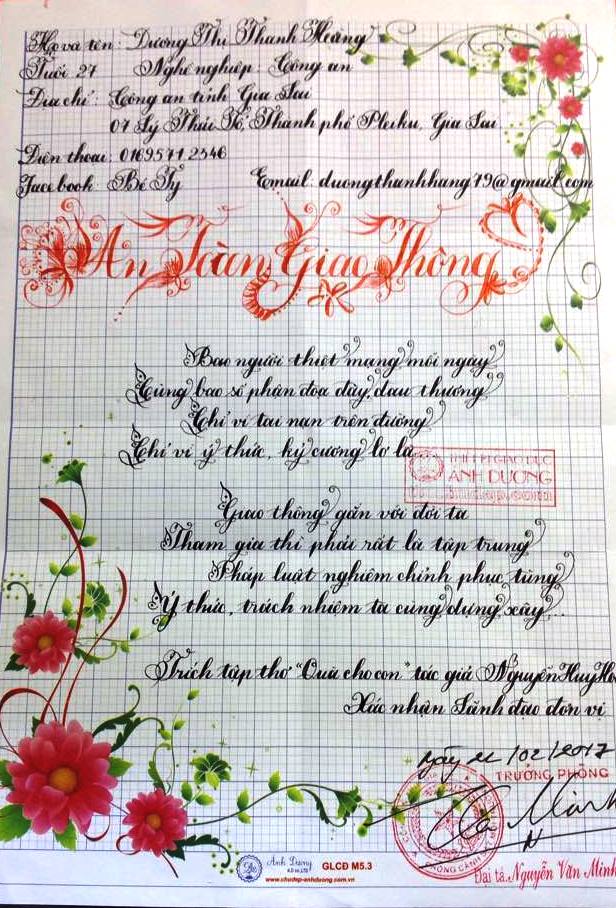 Họ và tên: Dương Thị Thanh Hằng
Tuổi 27 Nghề nghiệp: Công an
Địa chỉ: Công an tỉnh Gia Lai
07 Lý Thái Tổ, Thành phố Pleiku, Gia Lai
Điện thoại: 01695712346
Facebook: Bé Ty Email: duongthanhhang19@gmail.com
An Toàn Giao Thông
Bao người thiệt mạng mỗi ngày
Cùng bao số phận đọa đày, đau thương
Chỉ vì tai nạn trên đường
Chỉ vì ý thức, kỷ cương lơ là
ÁNH DƯƠNG
Giao thông gắn với đời ta
Tham gia thì phải rất là tập trung
Pháp luật nghiêm chỉnh phục tùng
Ý thức, trách nhiệm ta cùng dựng xây...
Trích tập thơ "Quà cho con" tác giả Nguyễn Huy
Xác nhận Lãnh đạo đơn vị
/02/2017
TRƯỞNG PHÒNG
Đại tá. Nguyễn Văn Minh
Ánh Dương
GLCĐ M5.3
www.chudep-anhduong.com.vn